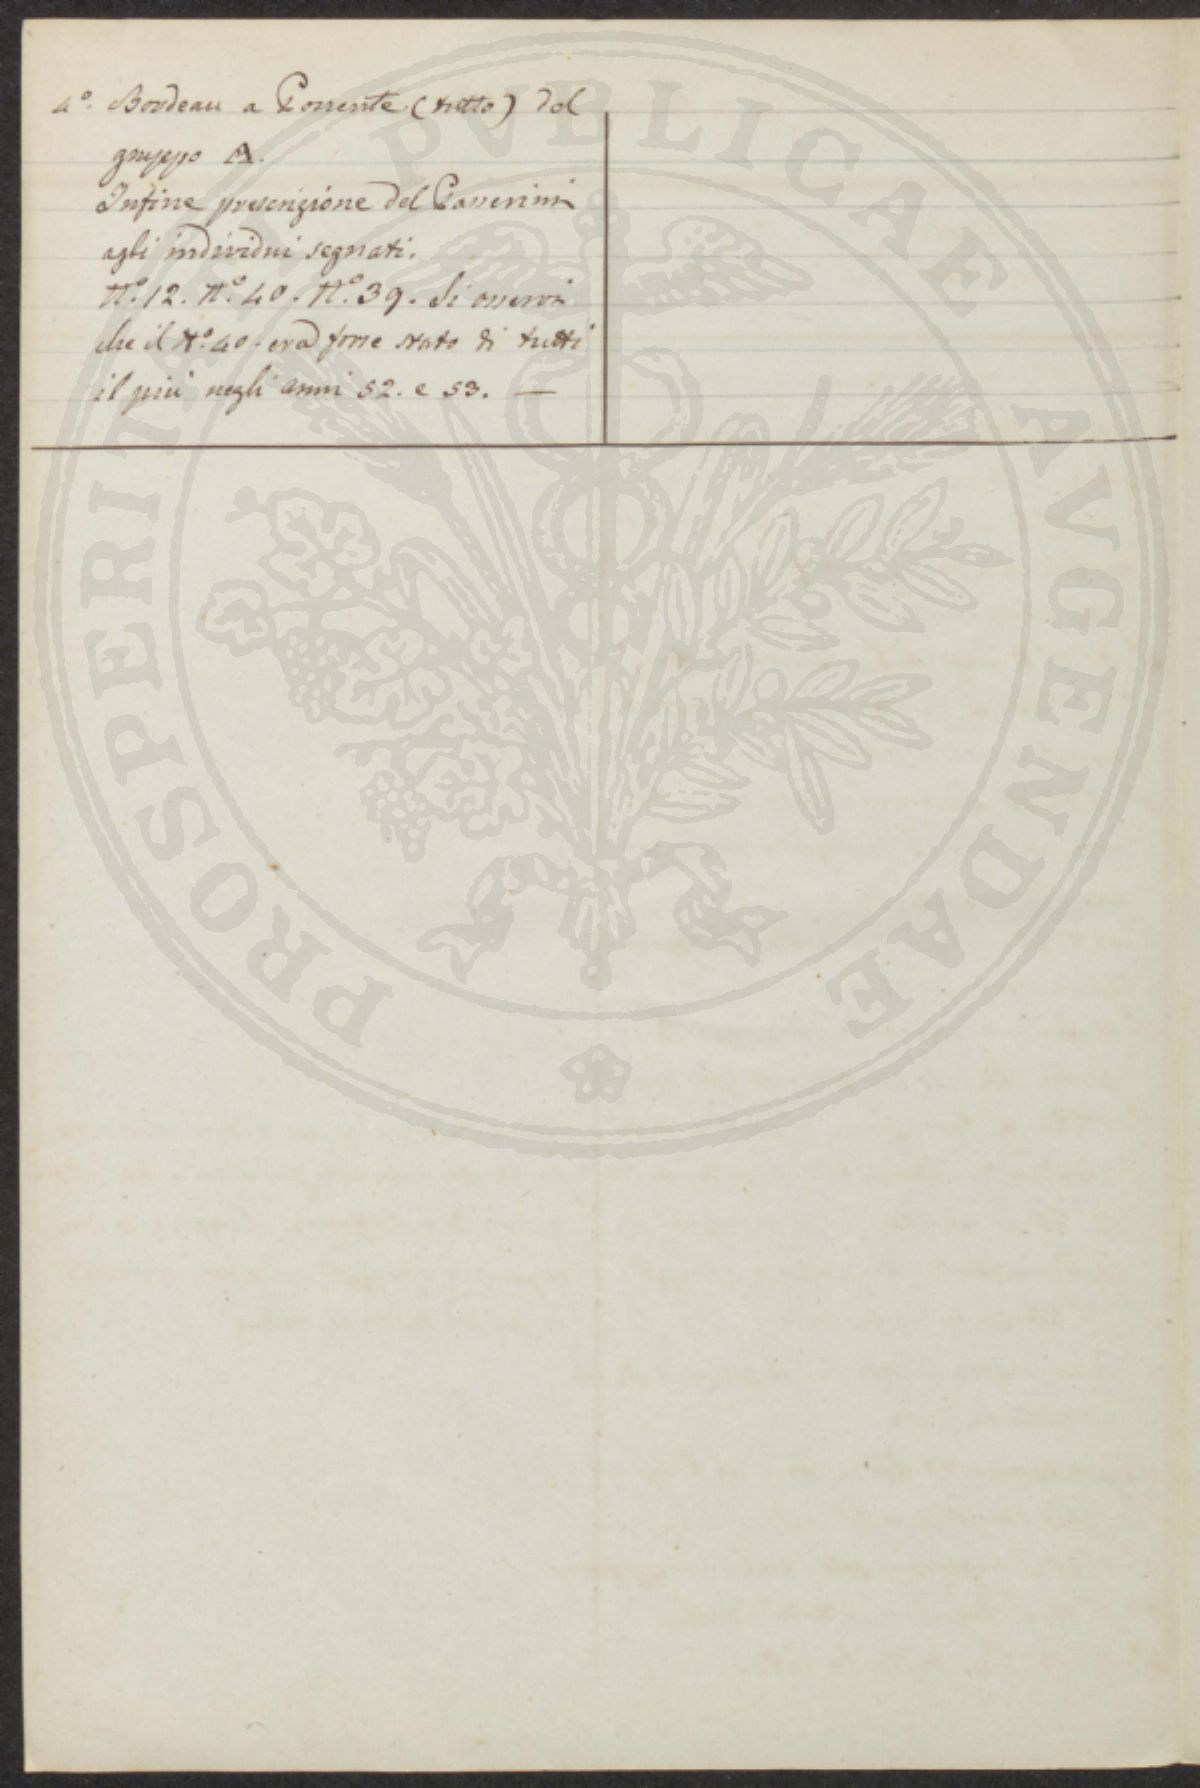 4°. Bordeau a Ponente (tutto) del
gruppo A.
Infine prescrizione del Passerini
agli individui segnati.
N.° 12. N.° 40. N.° 39. Si osservi
che il N.° 40. era forse stato di tutti
il più negli anni 52. e 53. —
PROSPERITATI PVBLICAE AVGENDAE